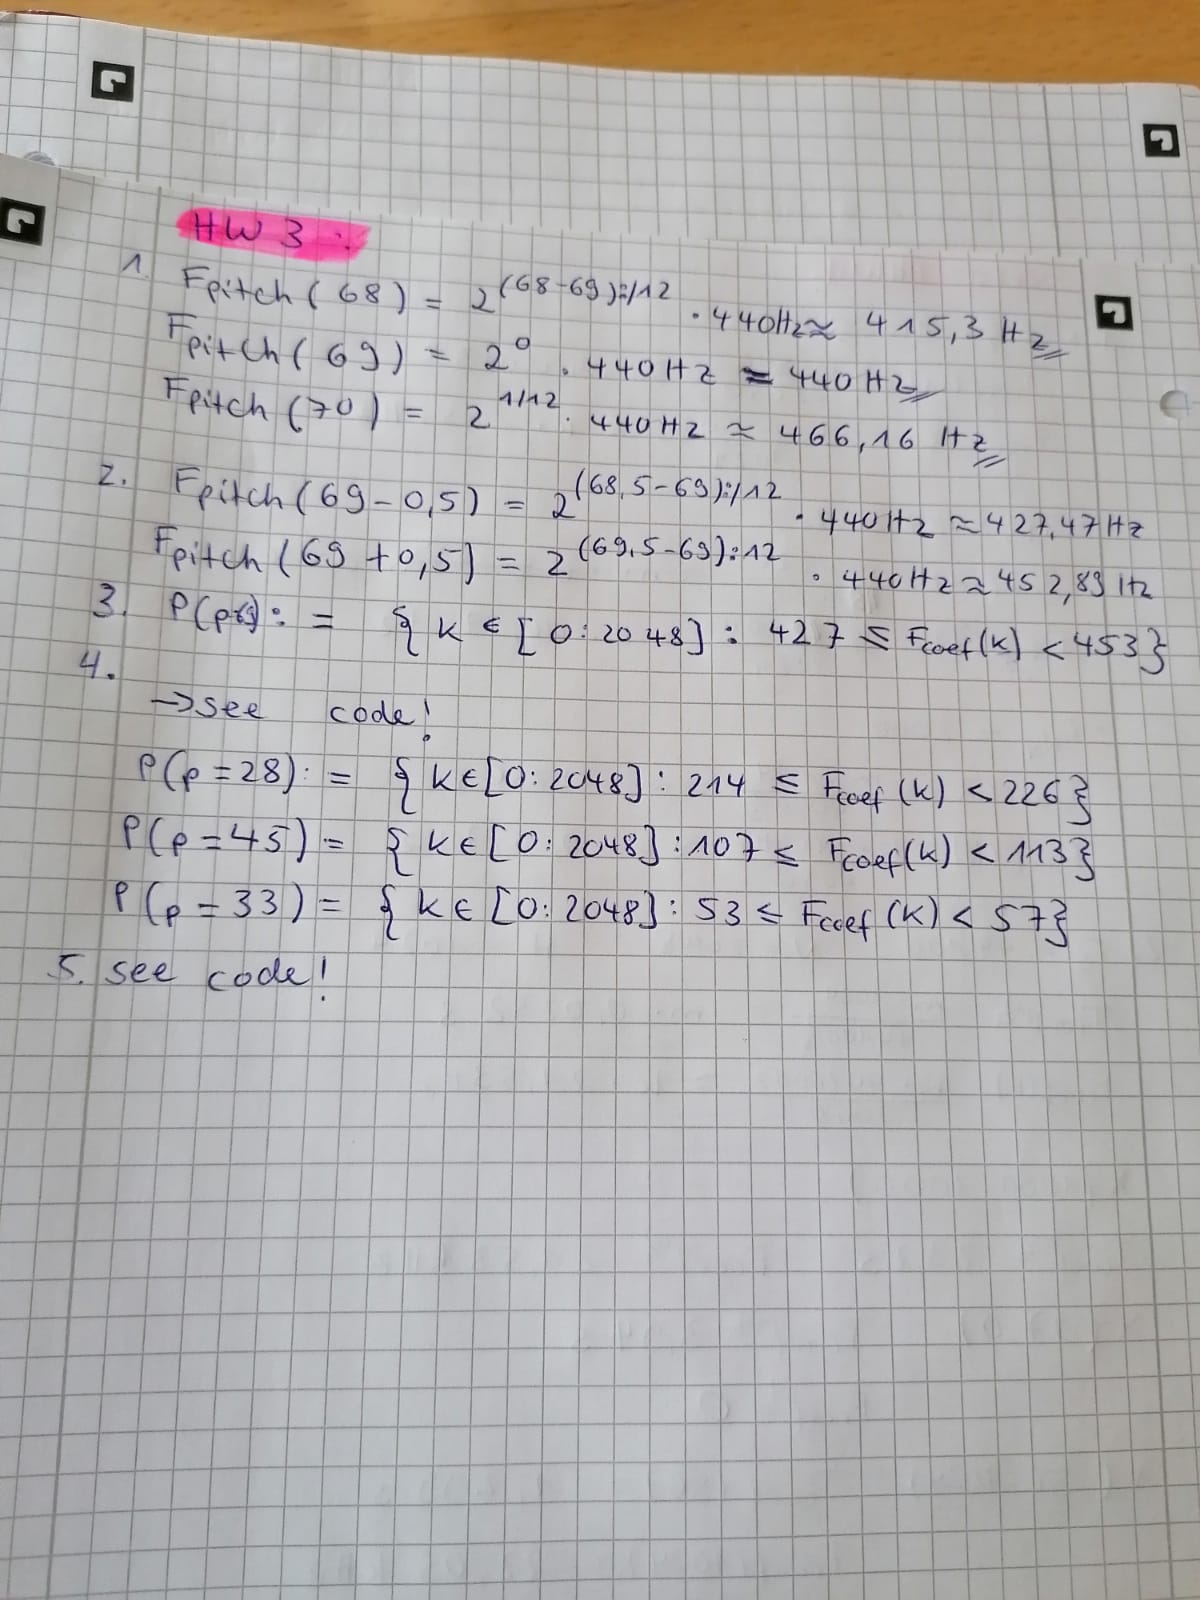 HW 3 :
1. Fpitch(68) = 2^(68-69):/12 · 440Hz ≈ 415,3 Hz
Fpitch(69) = 2^0 · 440Hz = 440Hz
Fpitch(70) = 2^1/12 · 440Hz ≈ 466,16 Hz
2. Fpitch(69-0,5) = 2^(68,5-69):/12 · 440Hz ≈ 427,47Hz
Fpitch(69+0,5) = 2^(69,5-69):12 · 440Hz ≈ 452,89 Hz
3. P(p69): = { k ∈ [0:2048] : 427 ≤ Fcoef(k) < 453}
4.
→ see code!
P(p=28): = { k ∈ [0:2048] : 214 ≤ Fcoef(k) < 226}
P(p=45) = { k ∈ [0:2048] : 107 ≤ Fcoef(k) < 113}
P(p=33) = { k ∈ [0:2048] : 53 ≤ Fcoef(k) < 57}
5. see code!